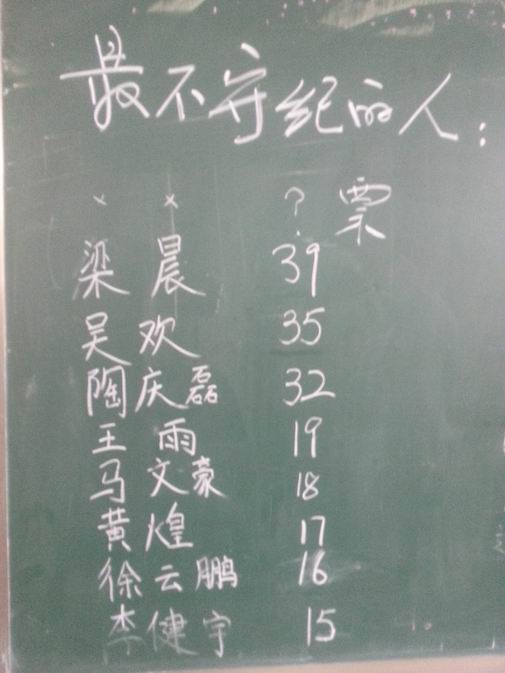 最不守纪的人:
× × ?票
梁晨 39
吴欢 35
陶庆磊 32
王雨 19
马文豪 18
黄煌 17
徐云鹏 16
李健宇 15